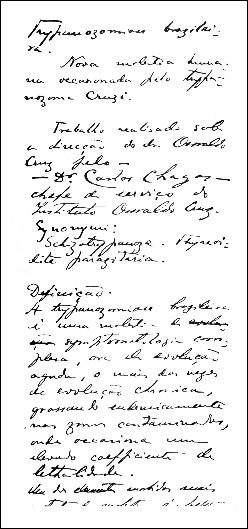 Trypanozomiase brazilei-
ra.
Nova molestia huma-
na occasionada pelo trypa-
nozoma Cruzi.
Trabalho realisado sob
a direcção do dr. Oswaldo
Cruz pelo —
— Dr Carlos Chagas —
chefe de serviço do
Instituto Oswaldo Cruz.
Synonymi:
Schizotrypanoze. Thyreoi-
dite parazitaria.
Definição.
A trypanozomiase brazileira
é uma molestia de
symptomatologia com-
plexa, ora de evolução
aguda, o mais das vezes
de evolução chronica,
grassando endemicamente
nas zonas contaminadas,
onde occasiona um
elevado coefficiente de
lethalidade.